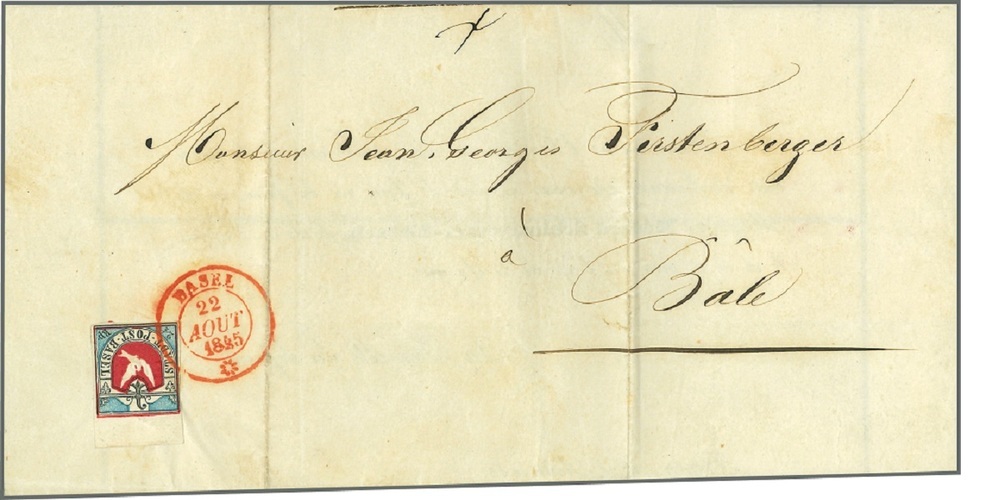 Monsieur Jean, Georges Fürstenberger
à
Bâle
BASEL
22
AOUT
1845
POST-BASEL